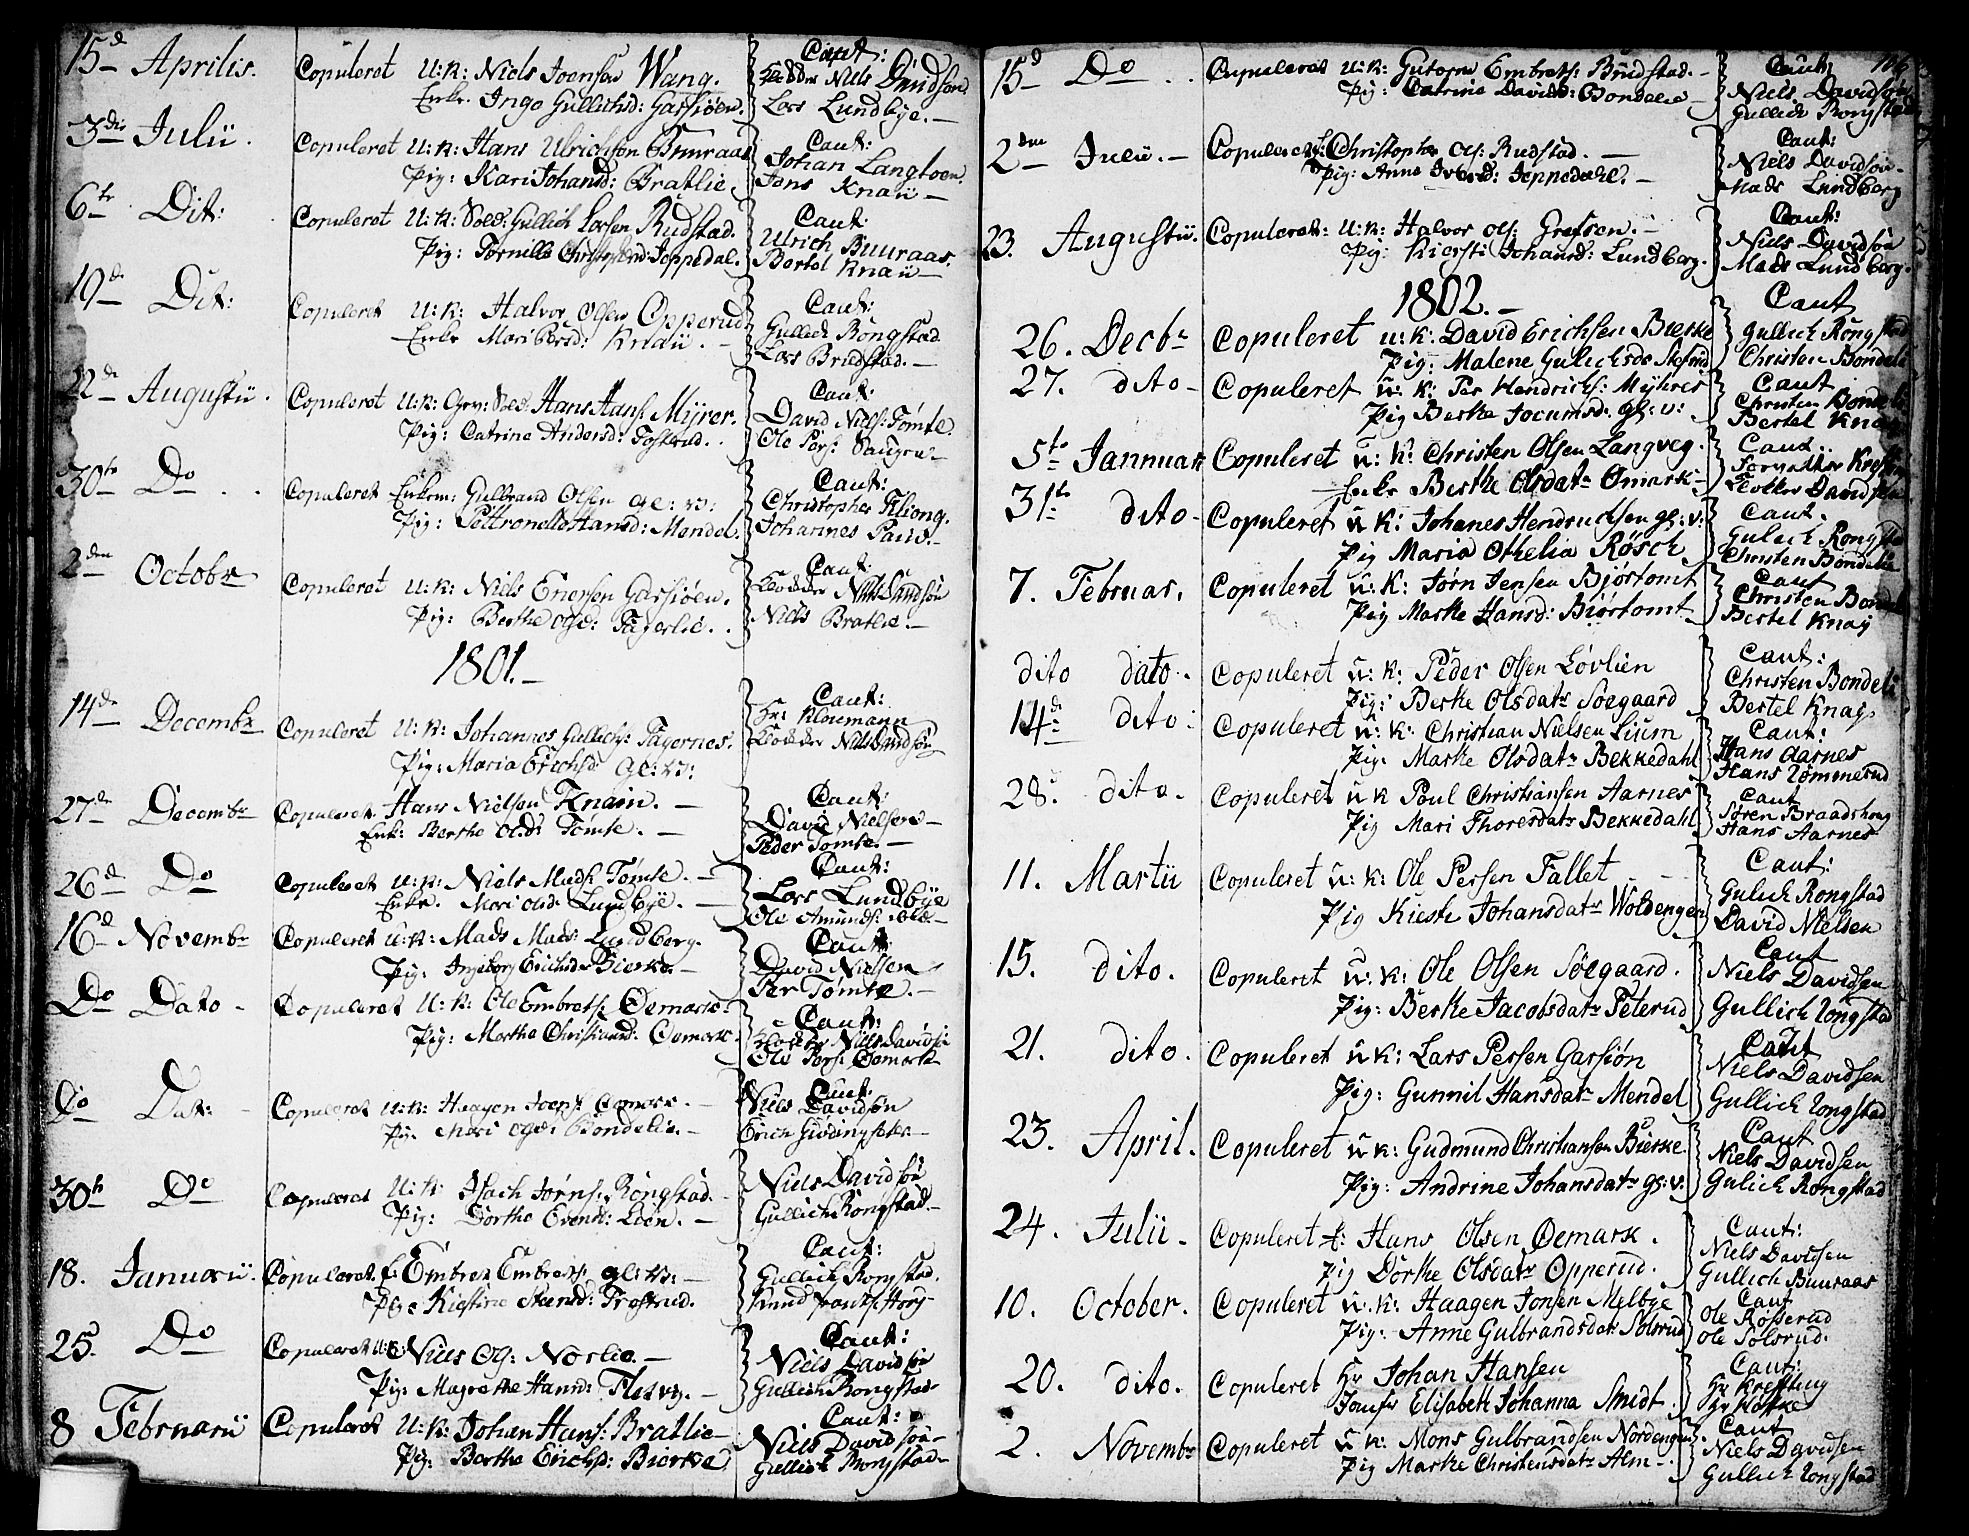 15d Aprilis. Copuleret U: K: Niels Joensen Wang. Caut:
Enke. Inge Gullichsd: Garsiöen. Klokker Niels Davidsøn
Lars Lundbye.
3die Julii. Copuleret U: K: Hans Ulrichsen Buuraas Caut:
Pig: Kari Johansd: Bratlie. Johan Langtoen.
Jens Knaü
6te Dit: Copuleret U: K: Sold: Gullich Larsen Rudstad. Caut
Pig: Pernille Christophersd: Jeppedal. Ulrich Buuraas.
Bertel Knaü
19de Dit: Copuleret U: K: Halvor Olsen Opperud Caut:
Enke Mari Persd: Knaü. Gullich Rongstad
Lars Brudstad.
22de Augustii. Copuleret U: K: Grv: Sold: Hans Hans: Myrer. Caut:
Pig: Catrine Andersd: Fosserud. David Niels: Tömte.
Ole Pers: Saugen
30te Do Copuleret Enkem: Gulbrand Olsen gl: v: Caut:
Pig: Pettronelle Hansd: Mendel. Christopher Kliong.
Johannes Paus.
2den Octobr Copuleret U: K: Niels Ericksen Garsiöen. Caut:
Pig: Berthe Olsd: Fagerlie. Klokker Niels Davidsøn
Niels Bratlie.
1801.
14de Decembr Copuleret U: K: Johannes Gullichs: Fagernes. Caut:
Pig: Maria Erichsd: gl: v: Hr: Klouemann
Klokker Niels Davidsøn
27de Decembr Copuleret Hans Nielsen Knain. Caut:
Enk: Berthe Olsd: Tömte. David Nielsen
Peder Tomte.
26d Do Copuleret U: K: Niels Mads: Tömte. Caut:
Enke. Mari Olsd: Lundbye. Lars Lundbye
Ole Amunds:
16d Novembr Copuleret U: K: Mads Mads: Lundberg. Caut:
Pig: Ingeborg Erichsd: Bierke. David Nielsen
Per Tømte.
Do Dato Copuleret U: K: Ole Embrets: Oemark Caut:
Pig: Marthe Christiansd: Oemark. Klokker Niels Davidsø
Ole Pers: Oemark
Do Dat: Copuleret U: K: Haagen Joens: Oemark. Caut:
Pig. Mari Olsd: Bondelie. Niels Davidsøn
Erich
30te Do Copuleret U: K: Isach Jörns: Rongstad. Niels Davidsøn
Pig: Dorthe Evensd: Lien. Gullich Rongstad.
18. Januarii. Copuleret. f: Embret Embrets: gl: v: Caut:
Pige Kiestine Hansd: Trostrud. Gullich Rongstad.
Knud Frants: Horg
25. Do Copuleret U: K: Niels Ols: Norlie. Caut:
Pig: Magrethe Hansd: Niels Davidsøn
Gullich Rongstad
8 Februarii Copuleret U: K: Johan Hans: Bratlie Caut:
Pig: Berthe Erichsd: Bierke Niels Davidsøn
Gullich Rongstad
106
15d Do Copuleret U: K: Gutorm Embrets: Brudstad. Caut:
Pig: Catrine Davidsd: Bondelie Niels Davidsøn
Gullich Rongstad
2den Julii. Copuleret f: Christopher Ols: Rudstad. Caut:
Pig: Anne Iversd: Jeppedahl. Niels Davidsøn
Mads Lundberg
23. Augustii. Copuleret: U: K: Halvor Ols: Grefsen. Caut:
Pig: Kiersti Johansd: Lundberg. Niels Davidsøn
Mads Lundberg.
1802.
26. Decbr Copuleret u: k: David Erichsen Bierke Caut
Pig: Malene Gulichsdr Gullich Rongstad
Christen Bondeli
27. dito Copuleret u: k: Per Hendrichs: Myhrer Caut
Pig Berthe Jocumsd: gl: v: Christen Bondeli
Bertel Knag
5te Jannuar Copuleret u: k: Christen Olsen Langveg. Caut.
Enke Berthe Olsdatr Omark
Klokker Davidsen
31te dito Copuleret u k: Johanes Hendrichsen gl: v: Caut.
Pig Maria Othelia Røsch Gulich Rongstad
Christen Bondelie
7. Februar. Copuleret u: k: Jörn Jensen Bjørtomt Caut
Pig Marthe Hansd: Biørtomt Christen Bondeli
Bertel Knag
dito dato. Copuleret u: k: Peder Olsen Lövlien Caut:
Pig: Berthe Olsdatr Soegaard Christen Bondeli
Bertel Knag
14de dito: Copuleret u: k: Christian Nielsen Lium Caut:
Pig: Marthe Olsdatr Bekkedahl Hans Aarnes
Hans Tömmerud
28. dito. Copuleret u k Poul Christiansen Aarnes Caut
Pig Mari Thoresdatr Bekkedahl Søren Braadshoug
Hans Aarnes
11. Martii Copuleret u: k: Ole Persen Fallet Caut:
Pig Kiesti Johansdatr Woldengen Gulich Rongstad
David Nielsen
15. dito. Copuleret u: k: Ole Olsen Söegaard. Caut
Pig: Berthe Jacobsdatr Peterud Niels Davidsen
Gullich Rongstad
21. dito. Copuleret u k: Lars Persen Garsiøn Caut
Pig: Gunnil Hansdatr Mendel Niels Davidsen
Gullich Rongstad
23. April. Copuleret u k: Gudmund Christiansen Bierke Caut
Pig: Andrine Johansdatr gl: v: Niels Davidsen
Gulich Rongstad
24. Julii Copuleret f: Hans Olsen Oemark. Caut:
Pig Dorthe Olsdatr Opperud. Niels Davidsen
Gullich Buuraas
10. October. Copuleret u. k: Haagen Jonsen Melbye Caut
Pig: Anne Gulbrandsdatr Solsrud Ole Röserud
Ole Solsrud.
20. dito. Copuleret Hr Johan Hansen Caut:
Jomfr Elisabeth Johanna Smidt. Hr Krefting
2. Novembr Copuleret u k: Mons Gulbrandsen Nordengen. Caut
Pig Marthe Christensdatr Alm Niels Davidsen
Gullich Rongstad